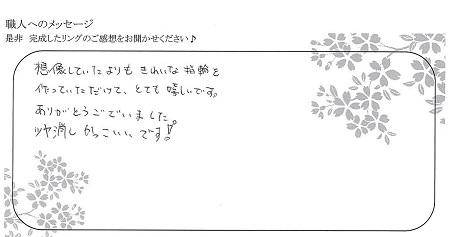 職人へのメッセージ
是非 完成したリングのご感想をお聞かせください♪
想像していたよりも きれいな 指輪を
作っていただけて、とても 嬉しいです。
ありがとうございました。
ツヤ消し かっこいい です!